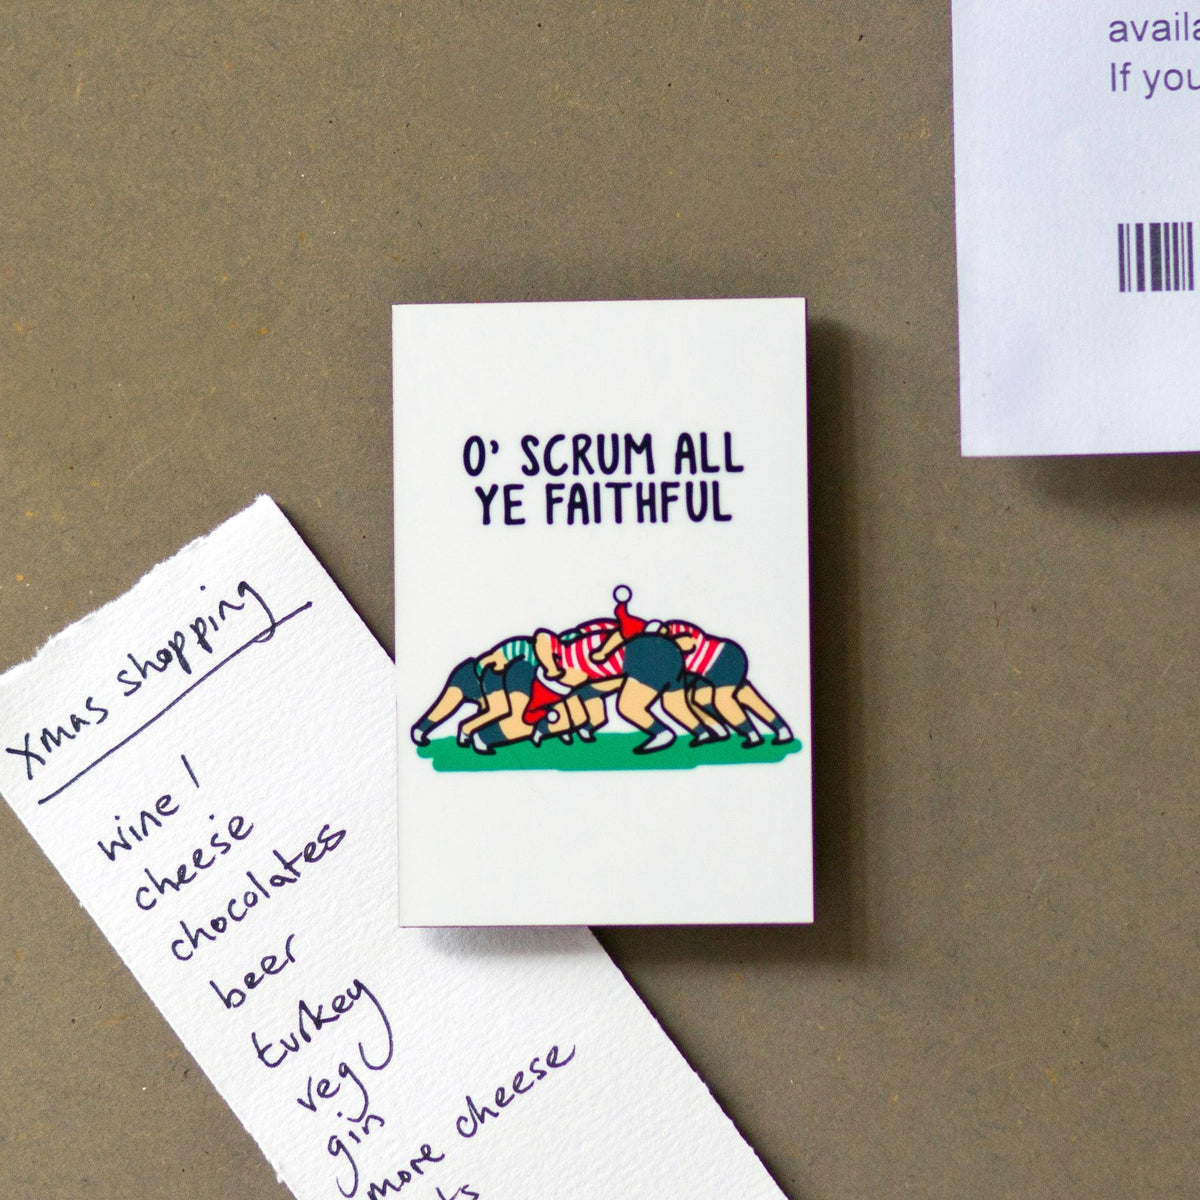 availa
If you
O' SCRUM ALL
YE FAITHFUL
Xmas shopping
wine !
cheese
chocolates
beer
turkey
veg
gin
more cheese